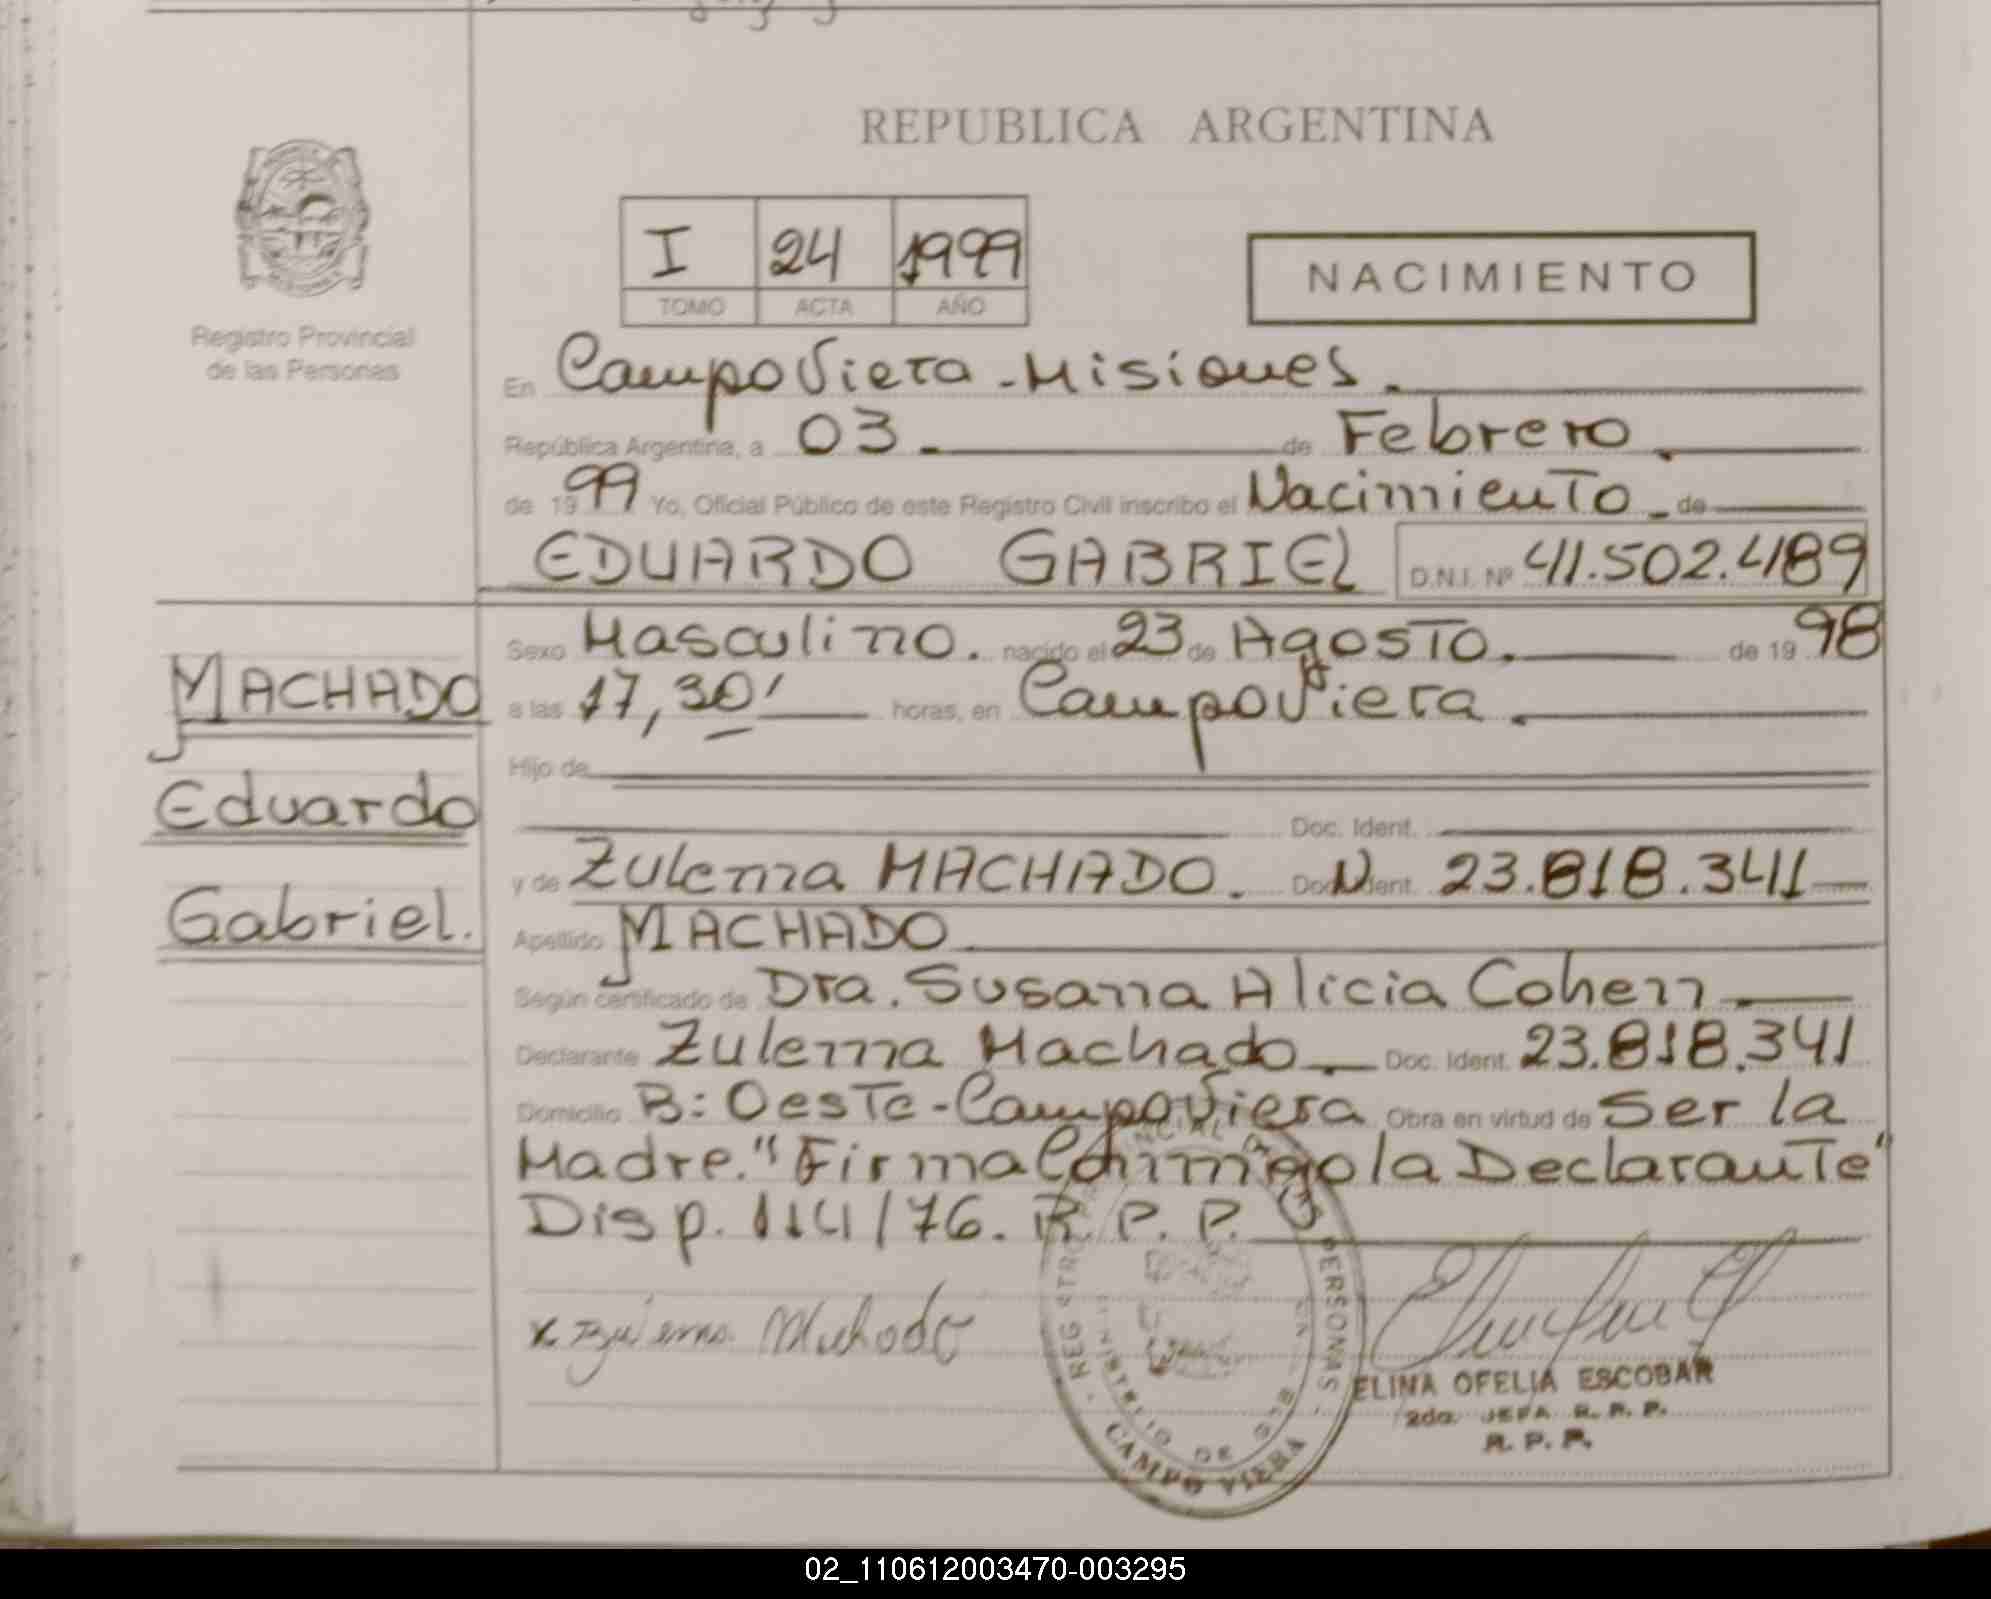 REPUBLICA ARGENTINA
I 24 1999
TOMO ACTA AÑO
NACIMIENTO
Registro Provincial
de las Personas
En Campo Viera - Misiones.
República Argentina, a 03 de Febrero
de 1999 Yo, Oficial Público de este Registro Civil inscribo el Nacimiento de
EDUARDO GABRIEL D.N.I. Nº 41.502.489
MACHADO
Eduardo
Gabriel.
Sexo Masculino. nacido el 23 de Agosto. de 1998
a las 17,30' horas, en Campo Viera.
Hijo de
Doc. Ident.
y de Zulema MACHADO. Doc. Ident. 23.818.341
Apellido MACHADO
Según certificado de Dra. Susana Alicia Cohen
Declarante Zulema Machado Doc. Ident. 23.818.341
Domicilio B: Oeste - Campo Viera Obra en virtud de Ser la
Madre. "Firma Conmigo la Declarante"
Disp. 114/76. R. P. P.
x Machado
PERSONAS
CAMPO VIERA
ELINA OFELIA ESCOBAR
2da. JEFA R. P. P.
R. P. P.
02_110612003470-003295